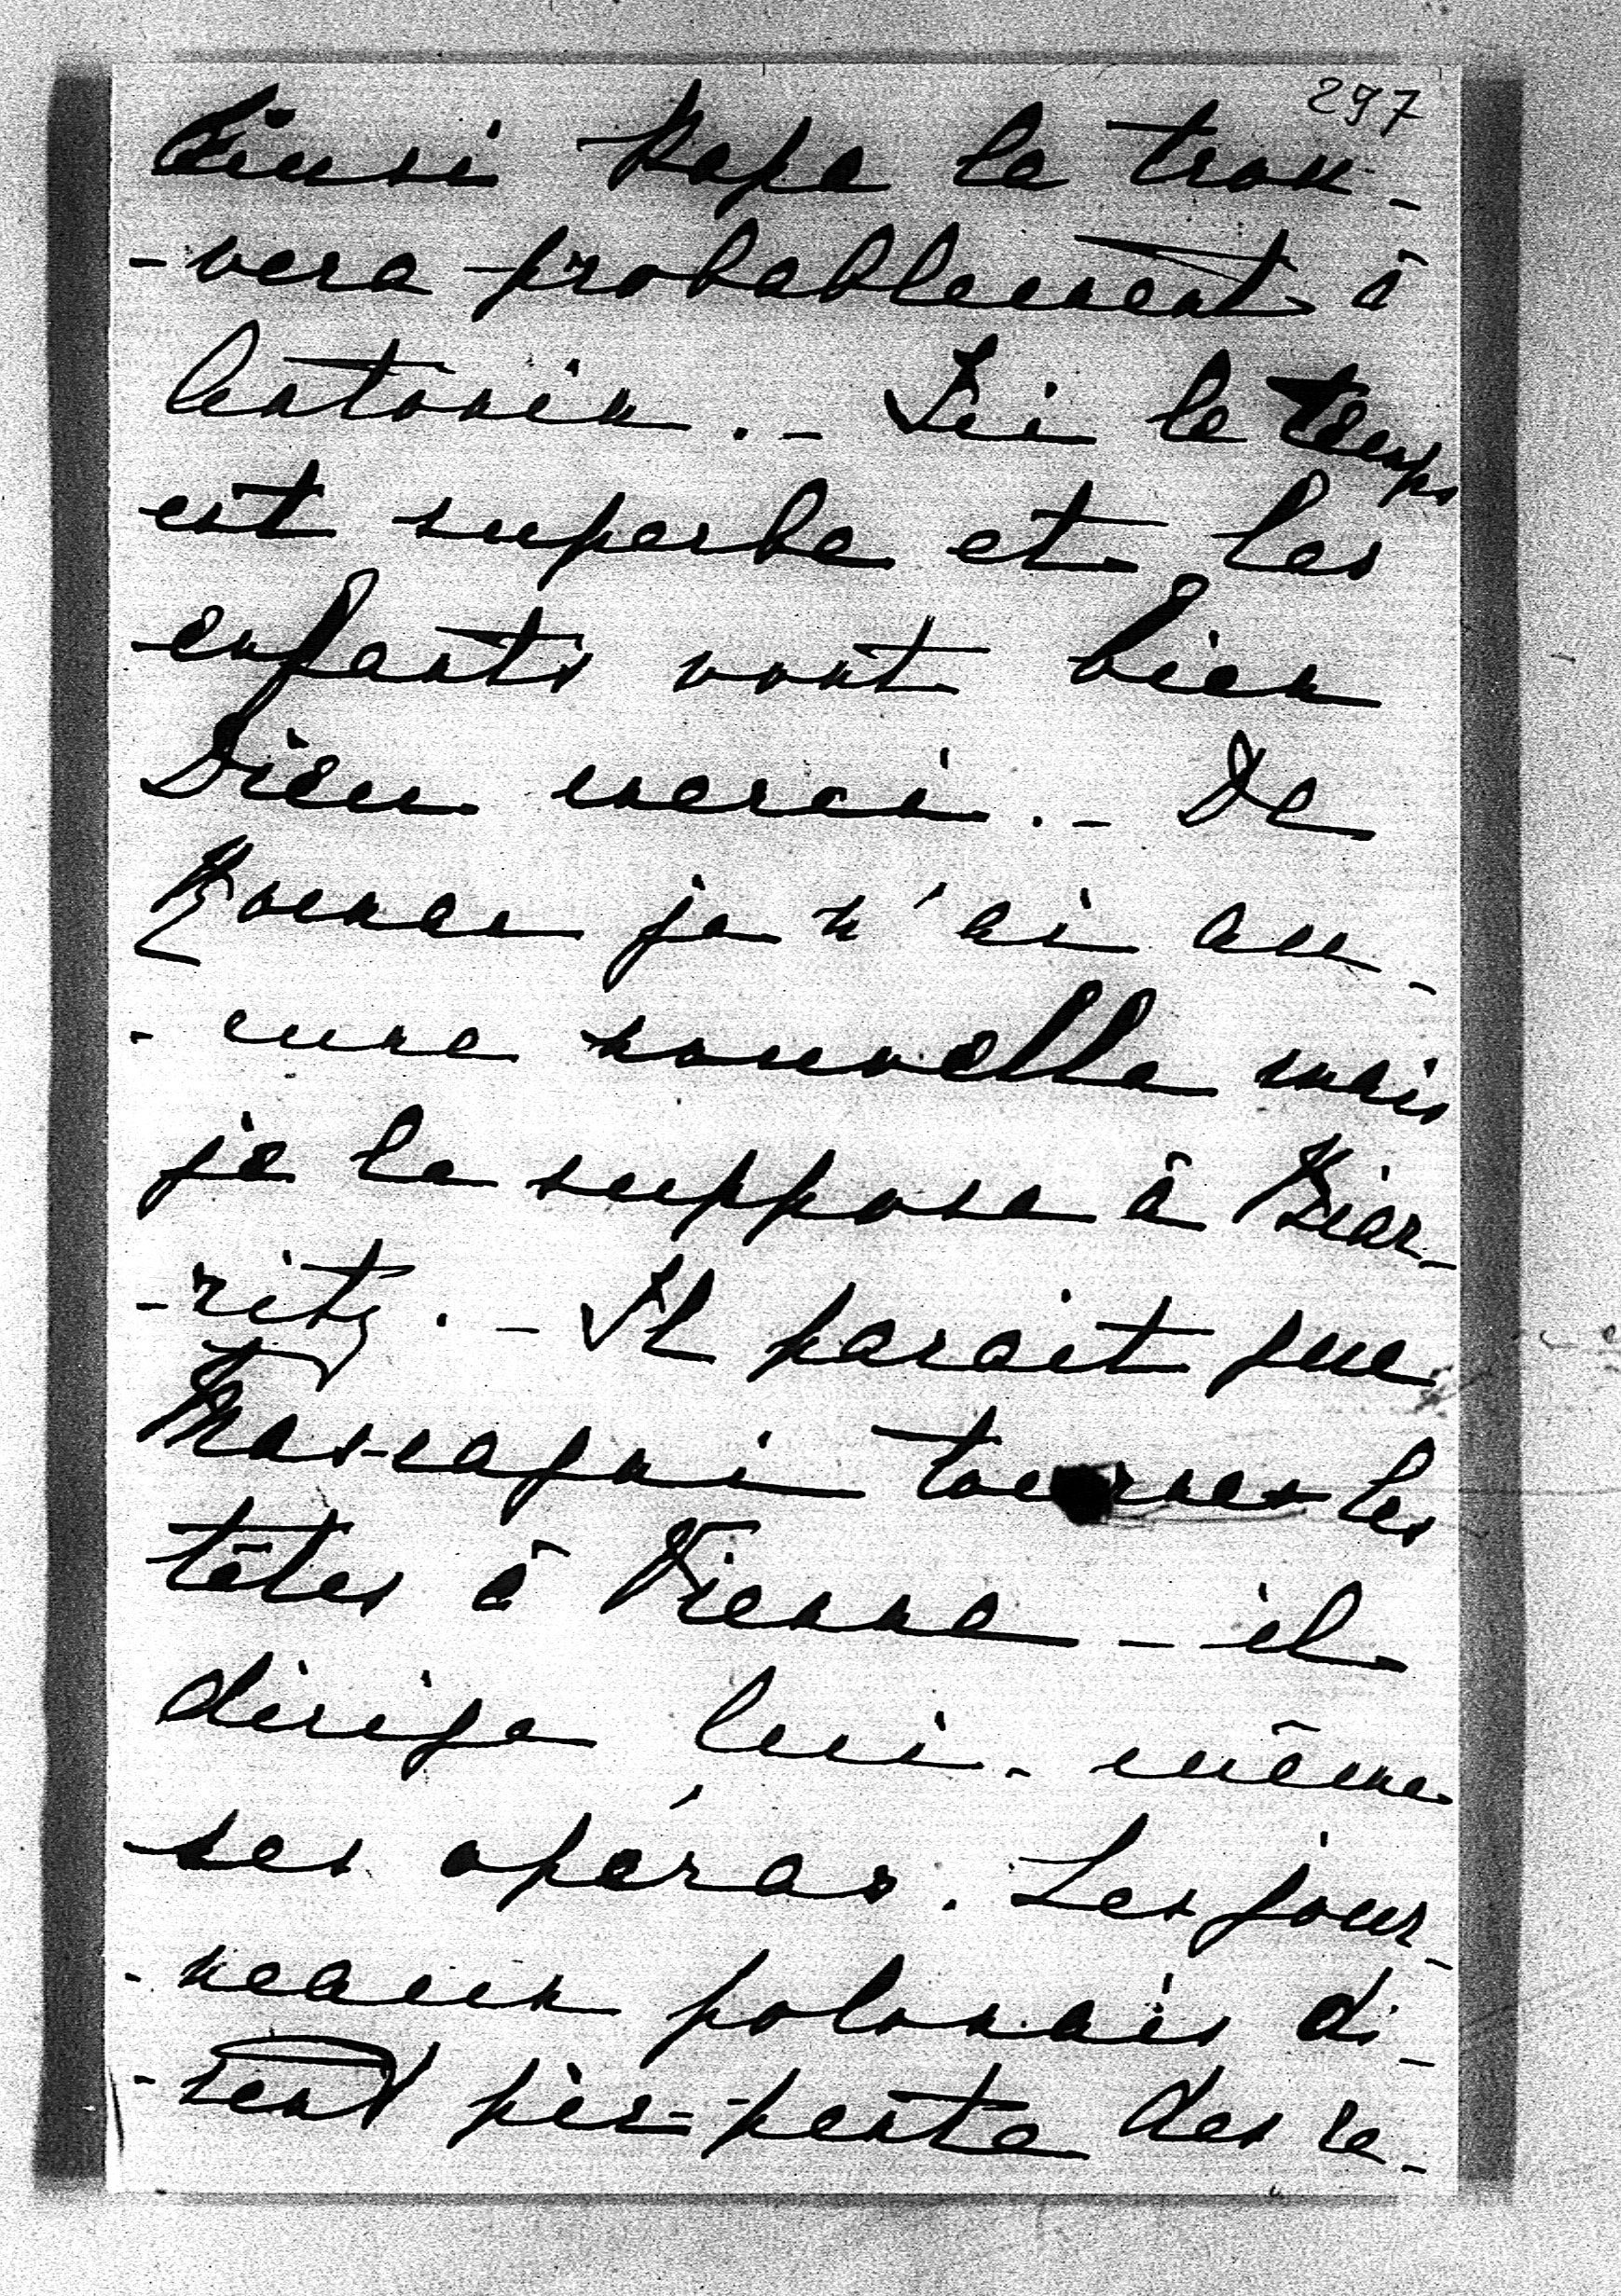 297
Ainsi Papa la trou-
-vera probablement à
Antonin. - Ici le temps
est superbe et les
enfants vont bien
Dieu merci. - De
je n'ai au-
-cune nouvelle mais
je la suppose à Biar-
-ritz. - Il parait que
Mascagni tourne les
têtes à Vienne - il
dirige lui-même
ses opéras. Les jour-
-neaux polonais di-
-sent pis-pente des re-